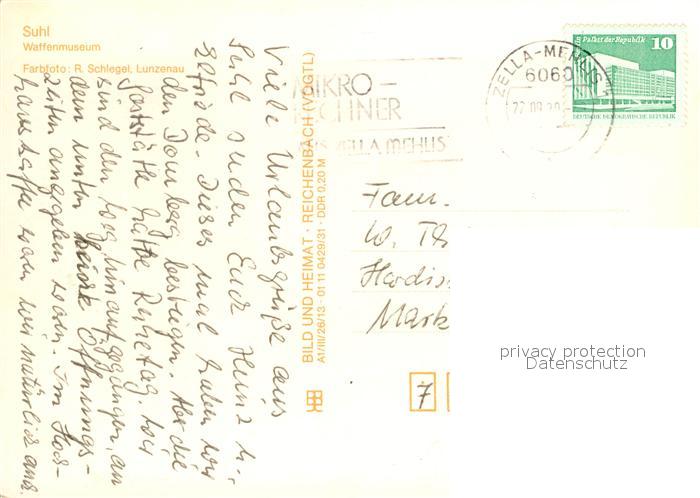 Suhl
Waffenmuseum
Farbfoto: R. Schlegel, Lunzenau
Viele Urlaubsgrüße aus
Suhl senden Euch Heinz u.
Elfriede. Dieses mal haben wir
den Domberg bestiegen. Aber die
Gaststätte hatte Ruhetag, wir
sind den Weg hinaufgegangen, an
dem unten keine Öffnungs-
zeiten angegeben waren. Im
waren wir natürlich auch
BILD UND HEIMAT · REICHENBACH (VOGTL)
A1/III/26/13 · 01 11 0429/31 · DDR 0,20 M
MIKRO-
ZELLA MEHLIS
ZELLA-MEHLIS
6060
Palast der Republik
10
DEUTSCHE DEMOKRATISCHE REPUBLIK
Fam.
W. Th
Mark
7
privacy protection
Datenschutz